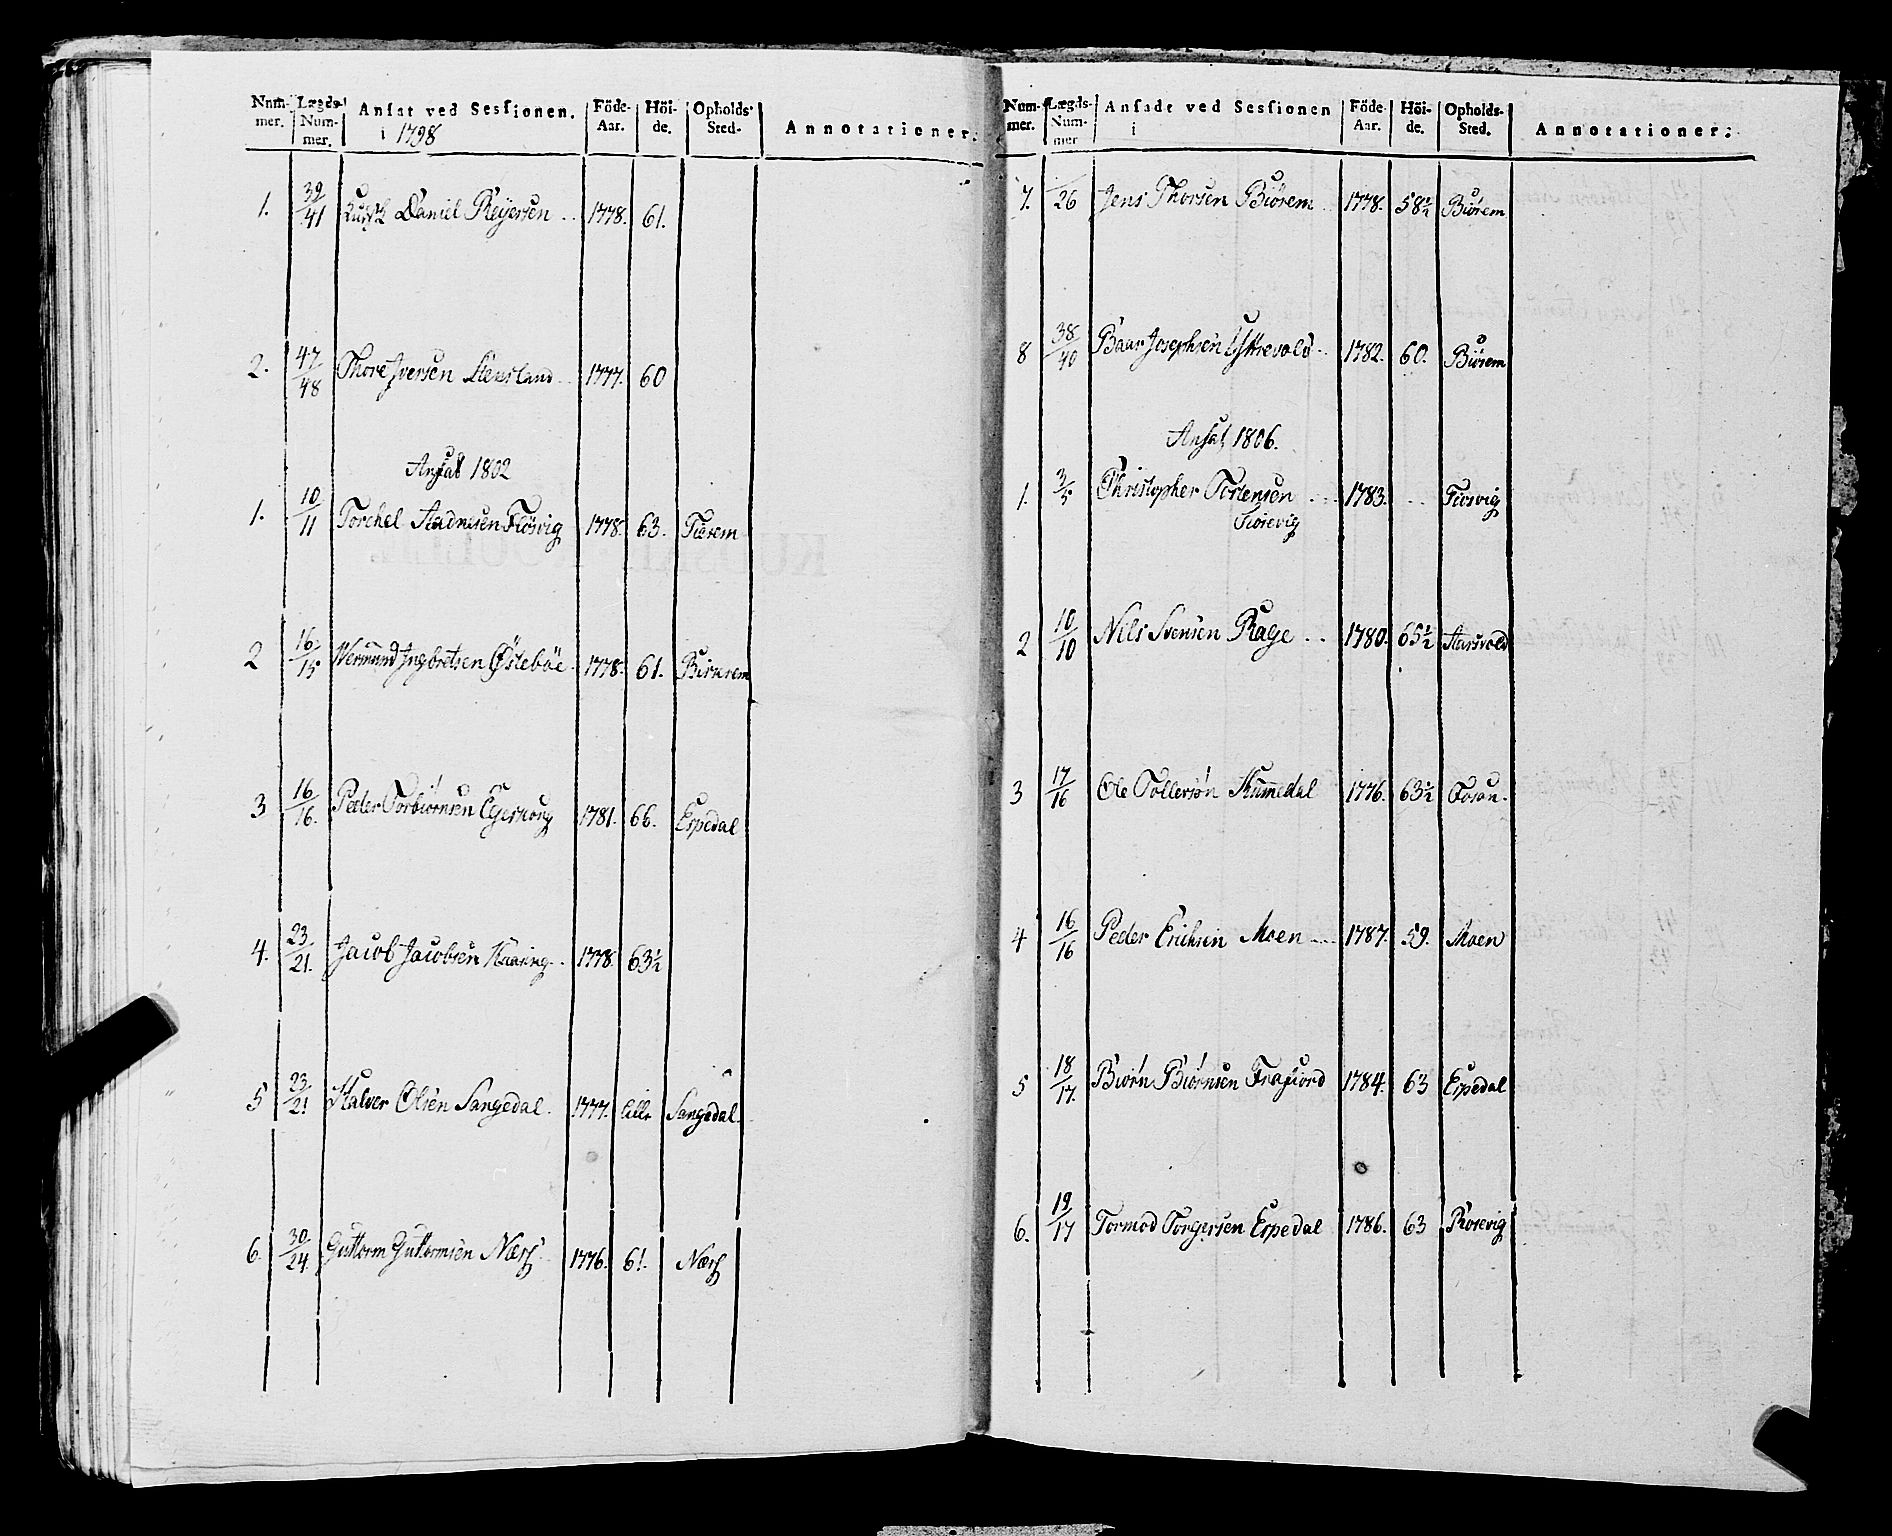 Num-mer. Lægds-Num-mer. Ansat ved Sessionen. i 1798 Föde-Aar. Höi-de. Opholds-Sted. Annotationer.
1. 39/41 Daniel Reijersen .. 1778. 61.
2. 47/48 Thore Iversen .. 1777. 60
Ansat 1802
1. 10/11 Torchel Aadnesen Fiosvig 1778. 63.
2 16/15 Wermund Ingbretsen Östeböe. 1778. 61. Birkrem
3 16/16. Peder Torbiörnsen 1781. 66. Espedal
4. 23/21. Jacob Jacobsen Haaring .. 1778. 63½
5 23/21 Halvor Olsen Sangedal. 1777. Lille Sangedal.
6. 30/24. Guttorm Guttormsen Næss 1776. 61. Næss
Num-mer. Lægds-Num-mer Ansadt ved Sessionen i Föde-Aar. Höi-de. Opholds-Sted. Annotationer.
7. 26 Jens Thorsen Biörem 1778. 58½ Biörem
8 38/40 Baar Josephsen Ystrevold .. 1782. 60. Biörem
Ansat 1806.
1. 3/5 Christopher Tostensen .... 1783. .. Fiosvig
Fiosevig
2 10/10 Nils Svensen Rage .. 1780. 65½ Aarsvold
3 17/16 Ole Tollersön Hummedal 1776. 63½ Fosan.
4 16/16 Peder Erichsen Moen .... 1787. 59. Moen
5 18/17. Biörn Biörnsen Frafiord 1784. 63 Espedal
6. 19/17 Tormod Torgersen Espedal 1786. 63 Rosevig